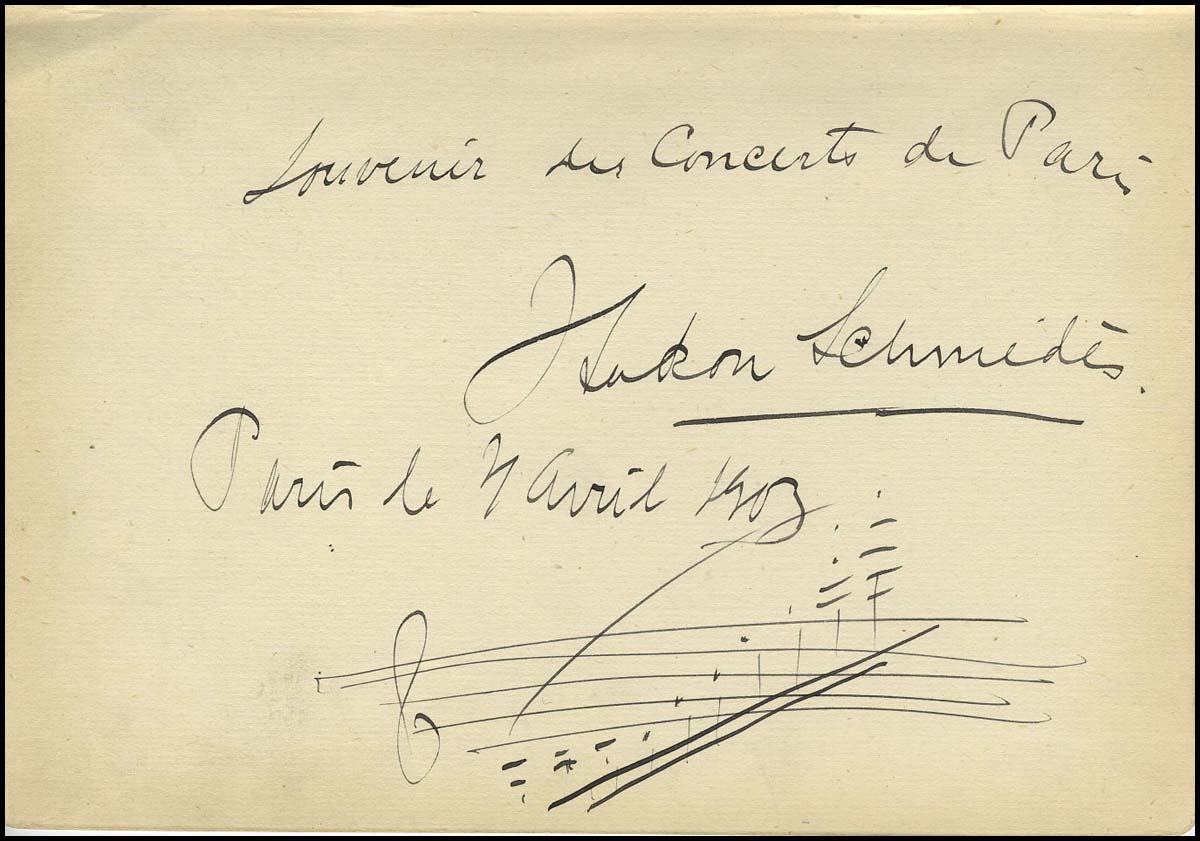 Souvenir des Concerts de Paris
Hakon Schmedès.
Paris le 7 Avril 1903